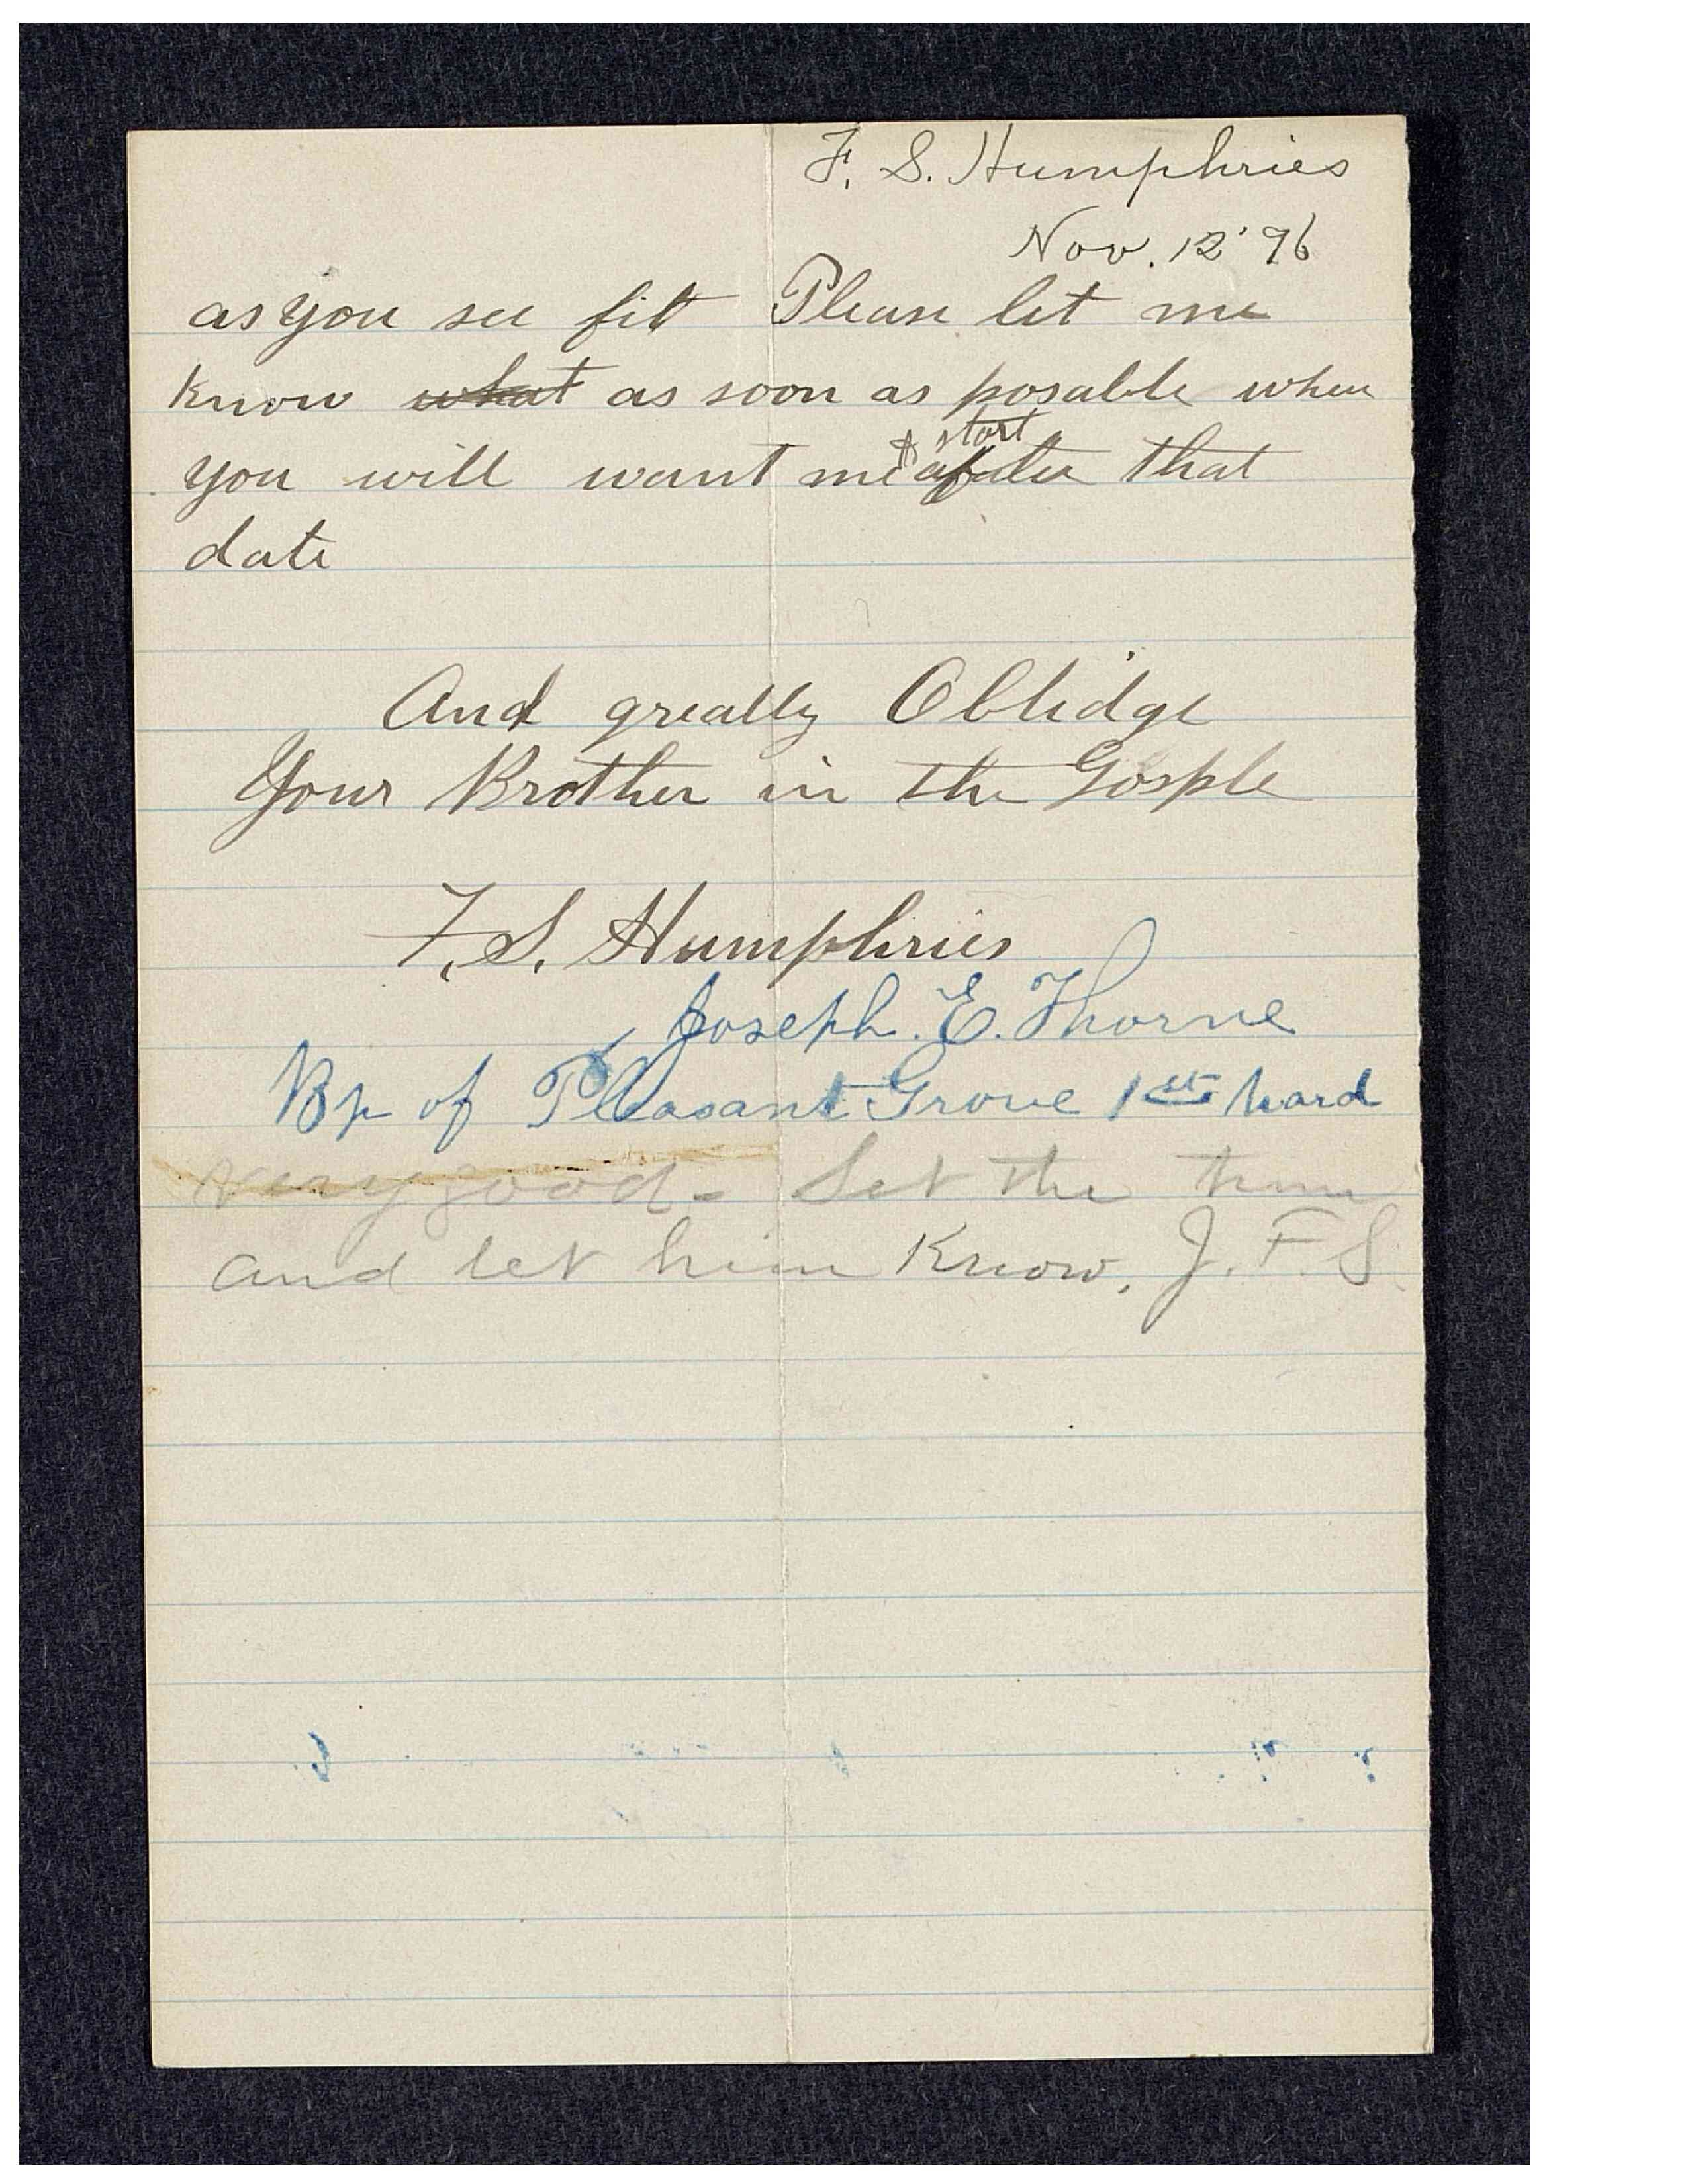 F. S. Humphries
Nov. 12 '96
as you see fit Please let me
know what as soon as posable when
you will want me to start after that
date
And greatly Oblidge
Your Brother in the Gosple
F. S. Humphries
Joseph. E. Thorne
Bp of Pleasant Grove 1st ward
Very good - Set the time
and let him know. J. F. S.